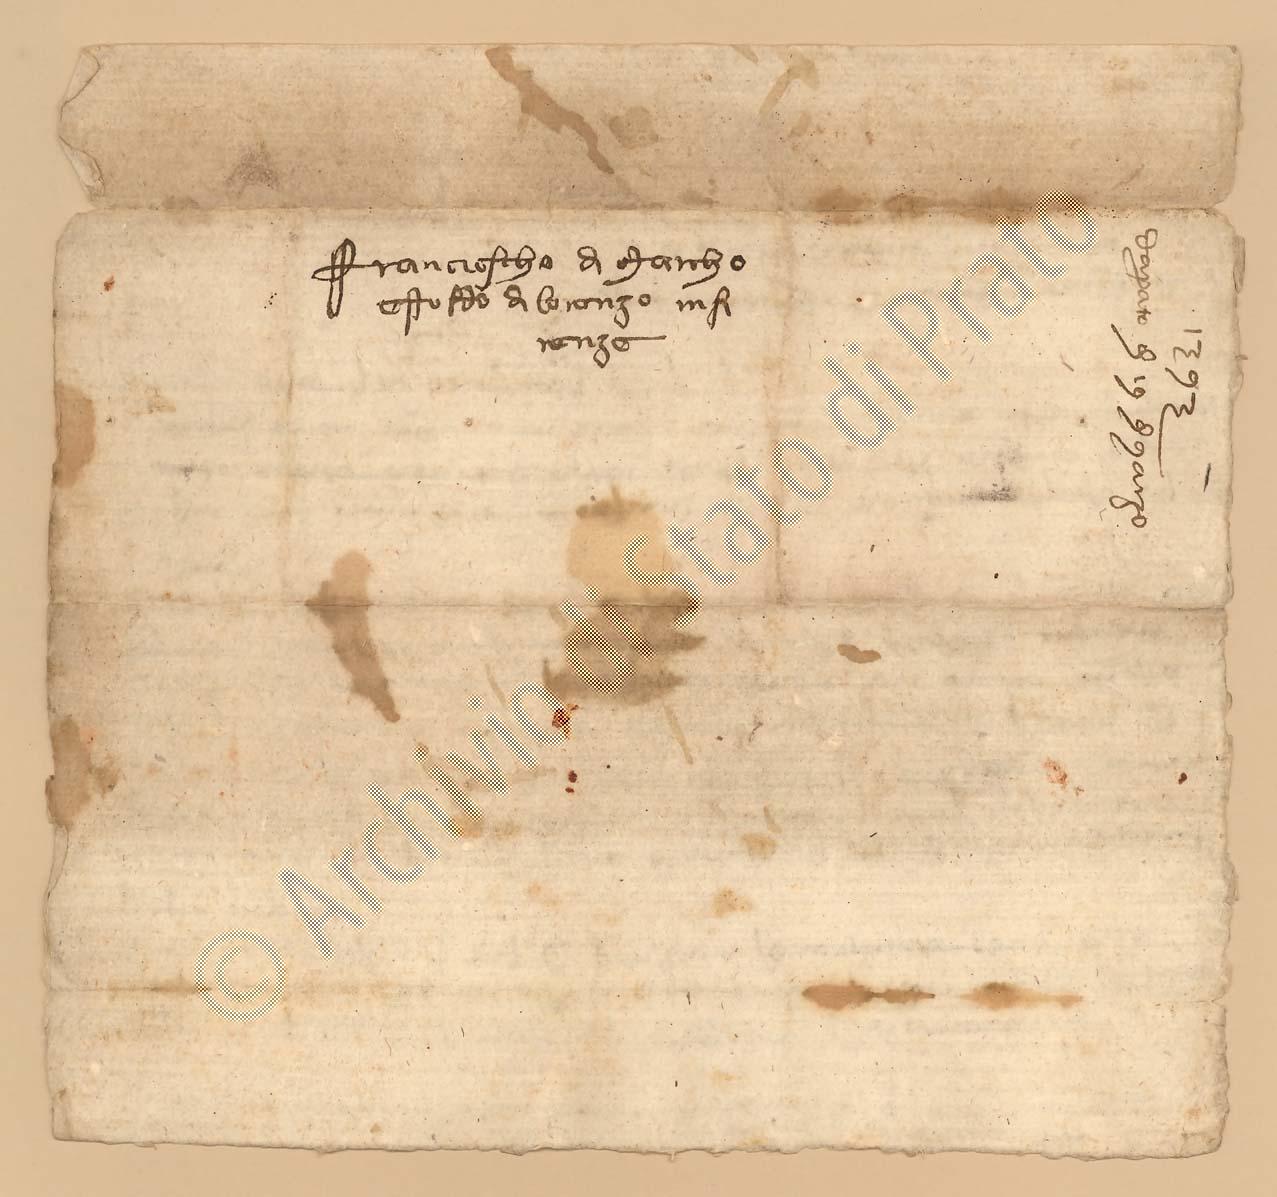 Franciescho di Marcho
e Stoldo di Lorenzo in Fi
renze
1393
Da Prato a dì 19 Marzo
© Archivio di Stato di Prato